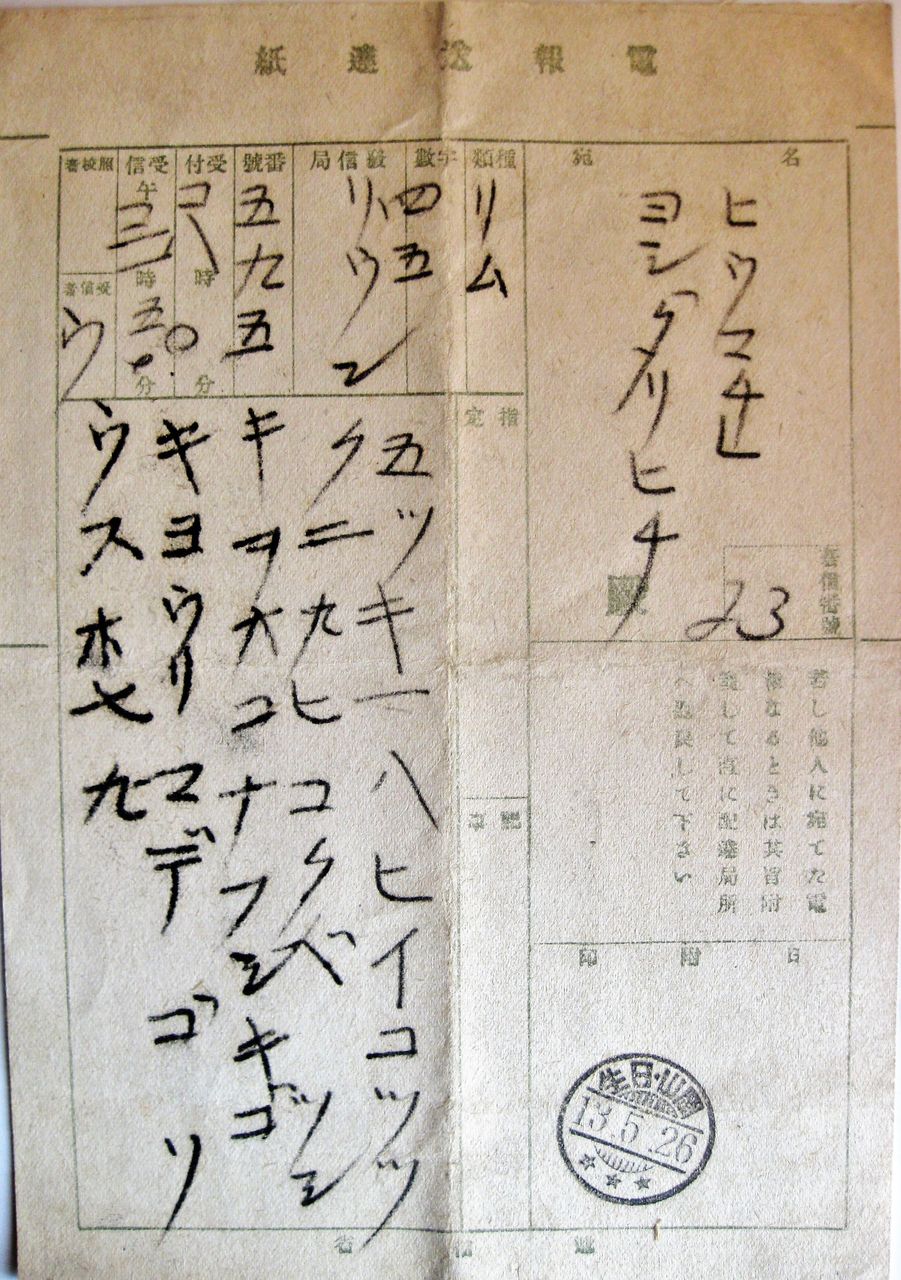 電報送達紙
宛名
ヒウマチ
ヨシダリヒチ
殿
着信番號
23
種類
リム
字數
四五
發信局
リウン
番號
五九五
受付
時
〇
分
受信
午
時
五〇
分
照校者
受信者
ウ
指定
五ツキ一八ヒイコツツ
ク二九ヒコクベツシ
キヲオコナフシキゴ
キヨウリマデゴソ
ウスホ七九
若し他人に宛てた電
報なるときは其旨附
箋して直に配達局所
へ返戻して下さい
日附印
岡山・日生
13.5.26
遞信省